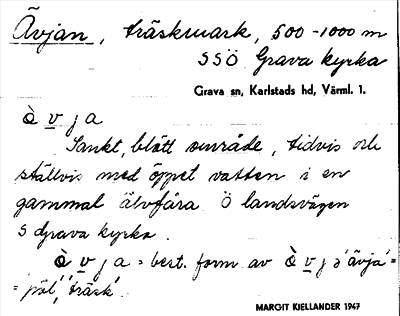 Ävjan, träskmark, 500-1000 m
SSÖ Grava kyrka
Grava sn, Karlstads hd, Värml. 1.
ὰ v j a
Sankt, blött område, tidvis och
ställvis med öppet vatten i en
gammal älvfåra Ö landsvägen
S Grava kyrka.
ὰ v j a = best. form av ὰ v j ə 'ävja' =
= 'pöl', 'träsk'.
MARGIT KJELLANDER 1947